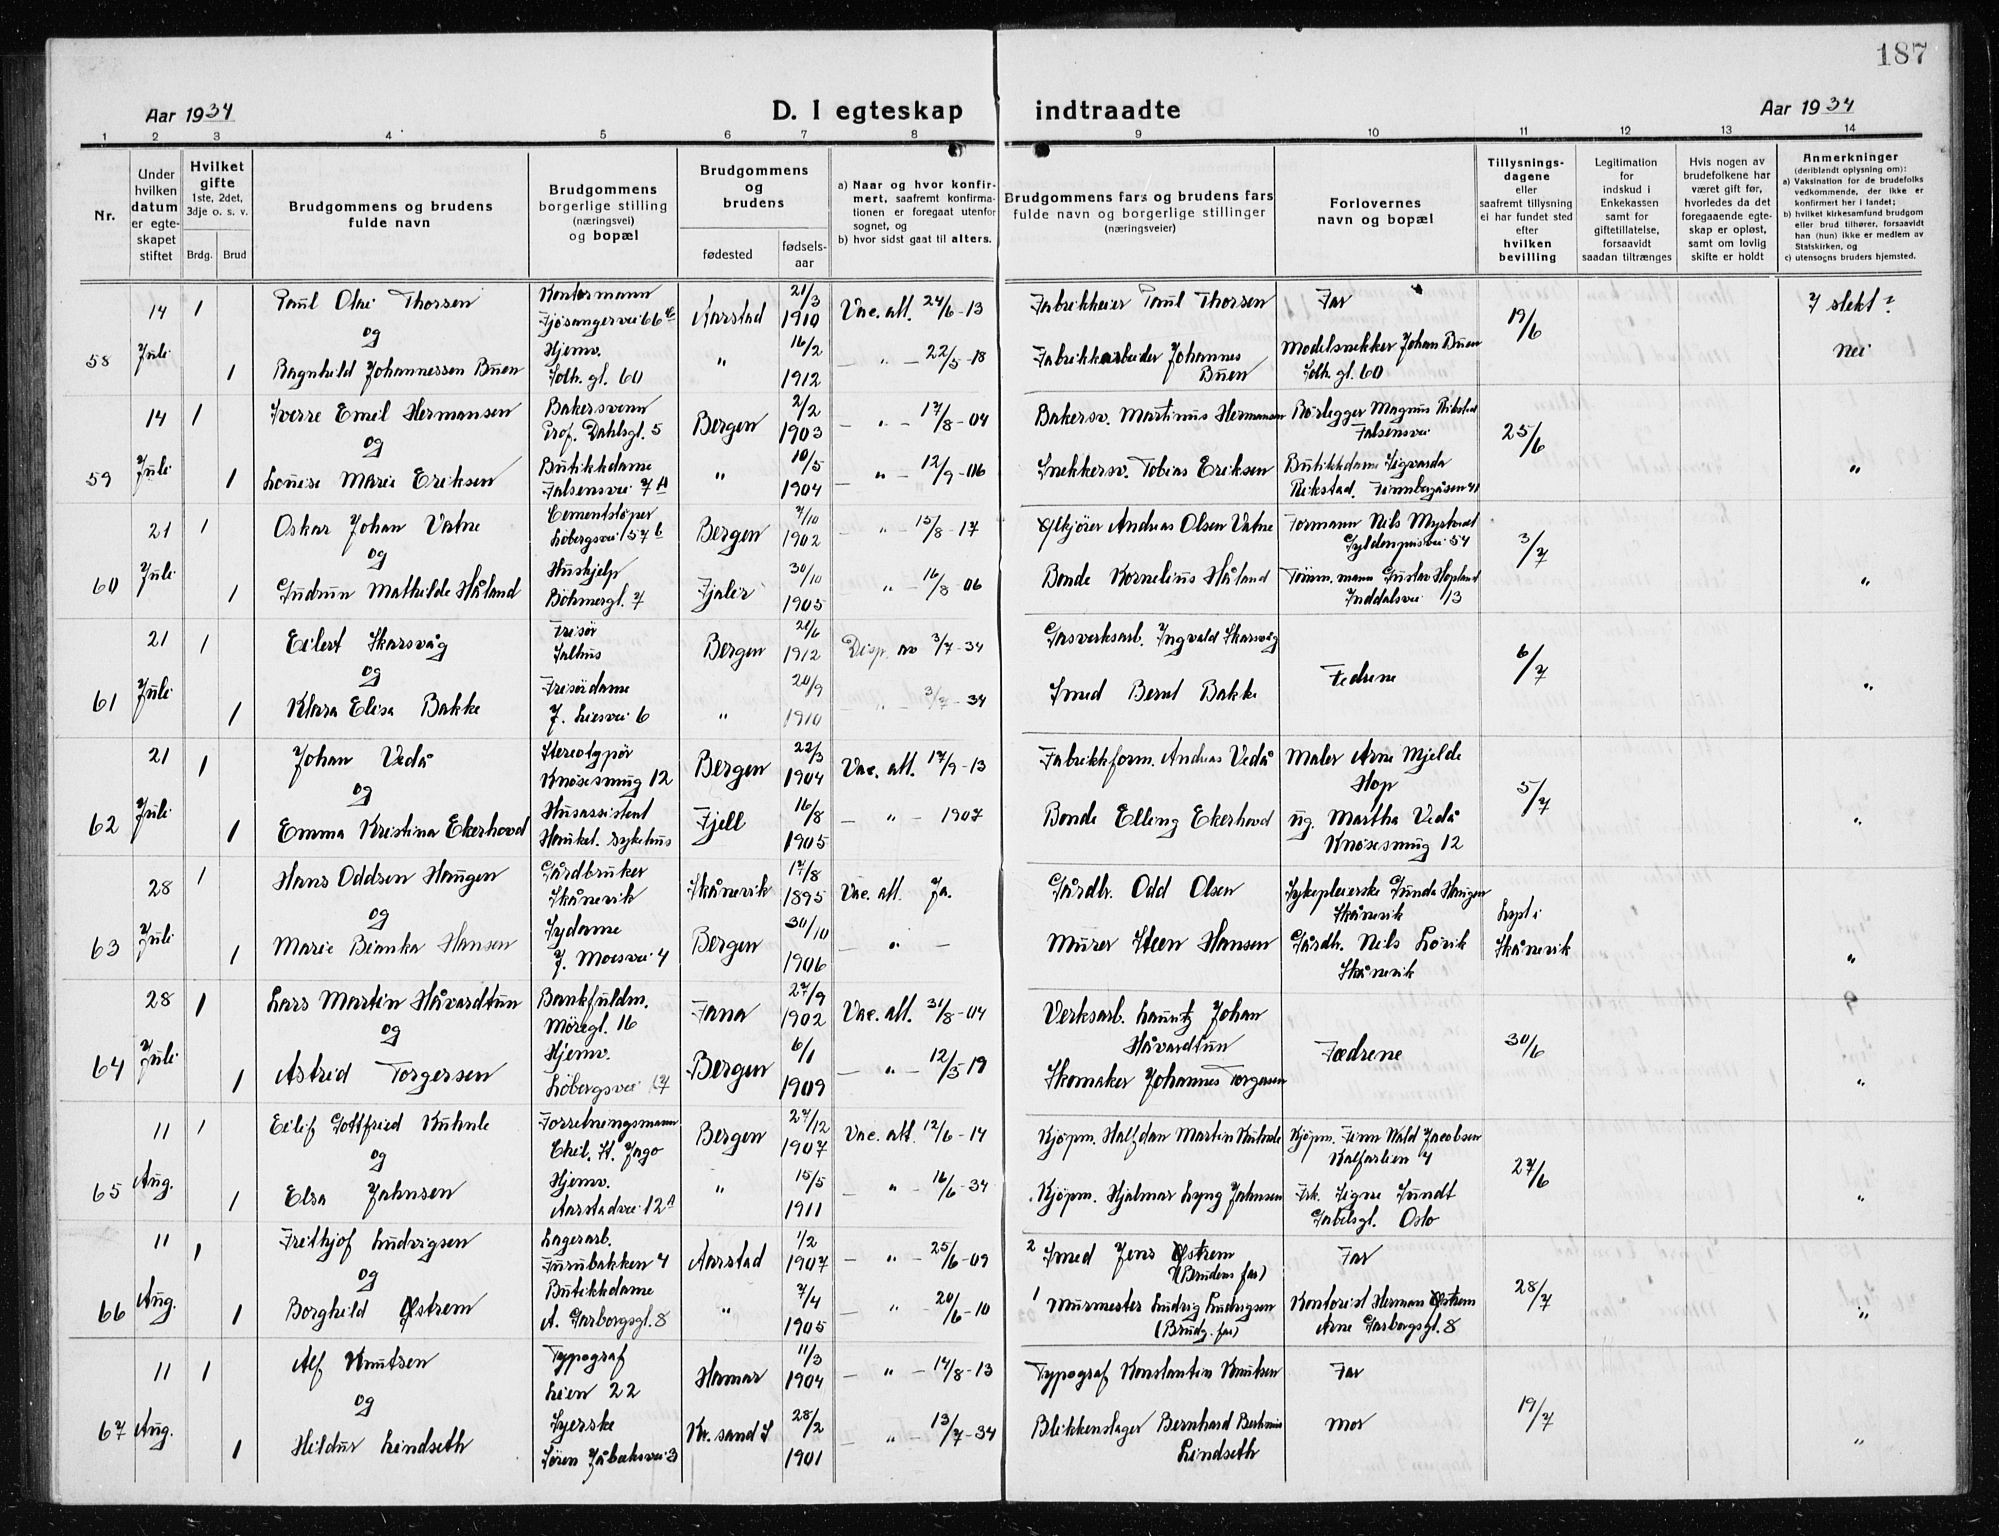 187
Aar 1934
D. I egteskap
indtraadte
Aar 1934
1 2 3 4 5 6 7 8 9 10 11 12 13 14
Nr.
Under hvilken datum er egteskapet stiftet
Hvilket gifte 1ste, 2det, 3dje o. s. v.
Brdg. Brud
Brudgommens og brudens fulde navn
Brudgommens borgerlige stilling (næringsvei) og bopæl
Brudgommens og brudens
fødested
fødselsaar
a) Naar og hvor konfirmert, saafremt konfirmationen er foregaat utenfor sognet, og
b) hvor sidst gaat til alters.
Brudgommens fars og brudens fars fulde navn og borgerlige stillinger (næringsveier)
Forlovernes navn og bopæl
Tillysningsdagene eller saafremt tillysning ei har fundet sted efter hvilken bevilling
Legitimation for indskud i Enkekassen samt for giftetillatelse, forsaavidt saadan tiltrænges
Hvis nogen av brudefolkene har været gift før, hvorledes da det foregaaende egteskap er opløst, samt om lovlig skifte er holdt
Anmerkninger (deriblandt oplysning om):
a) Vaksination for de brudefolks vedkommende, der ikke er konfirmert her i landet;
b) hvilket kirkesamfund brudgom eller brud tilhører, forsaavidt han (hun) ikke er medlem av Statskirken, og
c) utensogns bruders hjemsted.
58 14 Juli 1 Paul Olai Thorsen Kontormann Fjøsangervei 66 Aarstad 21/3 1910 Vac. att. 24/6-13 Fabrikkeier Paul Thorsen Far 19/6 I slekt?
og
1 Ragnhild Johannessen Buen Hjemv. Solh. gl. 60 " 16/2 1912 — " — 22/5-18 Fabrikkarbeider Johannes Buen Modelsnekker Johan Buen Solh. gl. 60 Nei
59 14 Juli 1 Sverre Emil Hermansen Bakersvenn Prof. Dahlsgt. 5 Bergen 2/2 1903 — " — 17/8-04 Bakersv. Martinus Hermansen Rørlegger Magnus Rikstad Falsensvei 25/6
og
1 Louise Marie Eriksen Butikkdame Falsensvei 7A " 10/5 1904 — " — 12/9-06 Snekkersv. Tobias Eriksen Butikkdame Sigvarda Rikstad "
60 21 Juli 1 Oskar Johan Vatne Cementstøper Løbergsvei 57 b Bergen 7/10 1902 — " — 15/8-17 Ølkjører Andreas Olsen Vatne Formann Nils 3/7
og
1 Gudrun Mathilde Håland Huskjelp Böhmergt. 7 Fjaler 30/10 1905 " — 16/8-06 Bonde Kornelius Håland Tømm.mann Gustav Hopland Inddalsvei 13 "
61 21 Juli 1 Eilert Skarsvåg Frisør Salhus Bergen 21/6 1912 Disp. av 3/7-34 Gasverksarb. Ingvald Skarsvåg Fedrene 6/7
og
1 Klara Elisa Bakke Frisørdame J. Liesvei 6 " 20/9 1910 — " — 3/7-34 Smed Bernt Bakke "
62 21 Juli 1 Johan Vedå Stereotypør Knøsesmug 12 Bergen 22/3 1904 Vac. att. 17/9-13 Fabrikkform. Andreas Vedå Maler Arne Mjelde Hop 5/7
og
1 Emma Kristina Ekerhovd Husassistent Haukel. sykehus Fjell 16/8 1905 — " — 1907 Bonde Elling Ekerhovd ug. Martha Vedå Knøsesmug 12 "
63 28 Juli 1 Hans Oddsen Haugen Gårdbruker Skånevik Skånevik 17/8 1895 Vac. att. Ja. Gårdbr. Odd Olsen Sykepleierske Gunda Haugen Skånevik Lyst i Skånevik
og
1 Marie Bianka Hansen Sydame J. Moesvei 4 Bergen 30/10 1906 — " — Murer Steen Hansen Gårdbr. Nils Lørik Skånevik "
64 28 Juli 1 Lars Martin Håvardtun Bankfuldm. Møregt. 16 Fana 27/9 1902 Vac. att. 31/8-04 Verksarb. Lauritz Johan Håvardtun Fædrene 30/6 9
og
1 Astrid Torgersen Hjemv. Løbergsvei Bergen 6/1 1909 — " — 12/5-19 Skomaker Johannes Torgersen "
65 11 Aug. 1 Eilif Gottfried Kuhnle Forretningsmann Bergen 27/12 1907 Vac. att. 12/6-14 Kjøpm. Halfdan Martin Kuhnle Kjøpm. Finn Wald Jacobsen Kalfarlien 4 27/6
og
1 Elsa Jahnsen Hjemv. Aarstadvei 12A " 15/5 1911 — " — 16/6-34 Kjøpm. Hjalmar Lyng Jahnsen Frk. Signe Sundt Gabelsgt. Oslo "
66 11 Aug. 1 Frithjof Ludvigsen Lagerarb. Furubakken 4 Aarstad 1/2 1907 — " — 25/6-09 2 Smed Jens Østrem (Brudens far) Far 28/7
og
1 Borghild Østrem Butikkdame A. Garborgsgt. 8 " 7/4 1905 " — 20/6-10 1 Murmester Ludvig Ludvigsen (Brudg. far) Kontorist Herman Østrem Arne Garborgsgt. 8 "
67 11 Aug. 1 Alf Knutsen Typograf Lien 22 Hamar 11/3 1904 — " — 14/8-13 Typograf Konstantin Knutsen Far 19/7
og
1 Hildur Lindseth Syerske Søren Jåbæksvei 3 Kr. sand S 28/2 1901 — " — 13/7-34 Blikkenslager Bernhard Lindseth Mor "